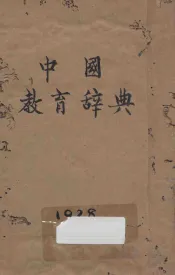 中國
教育辞典
1928